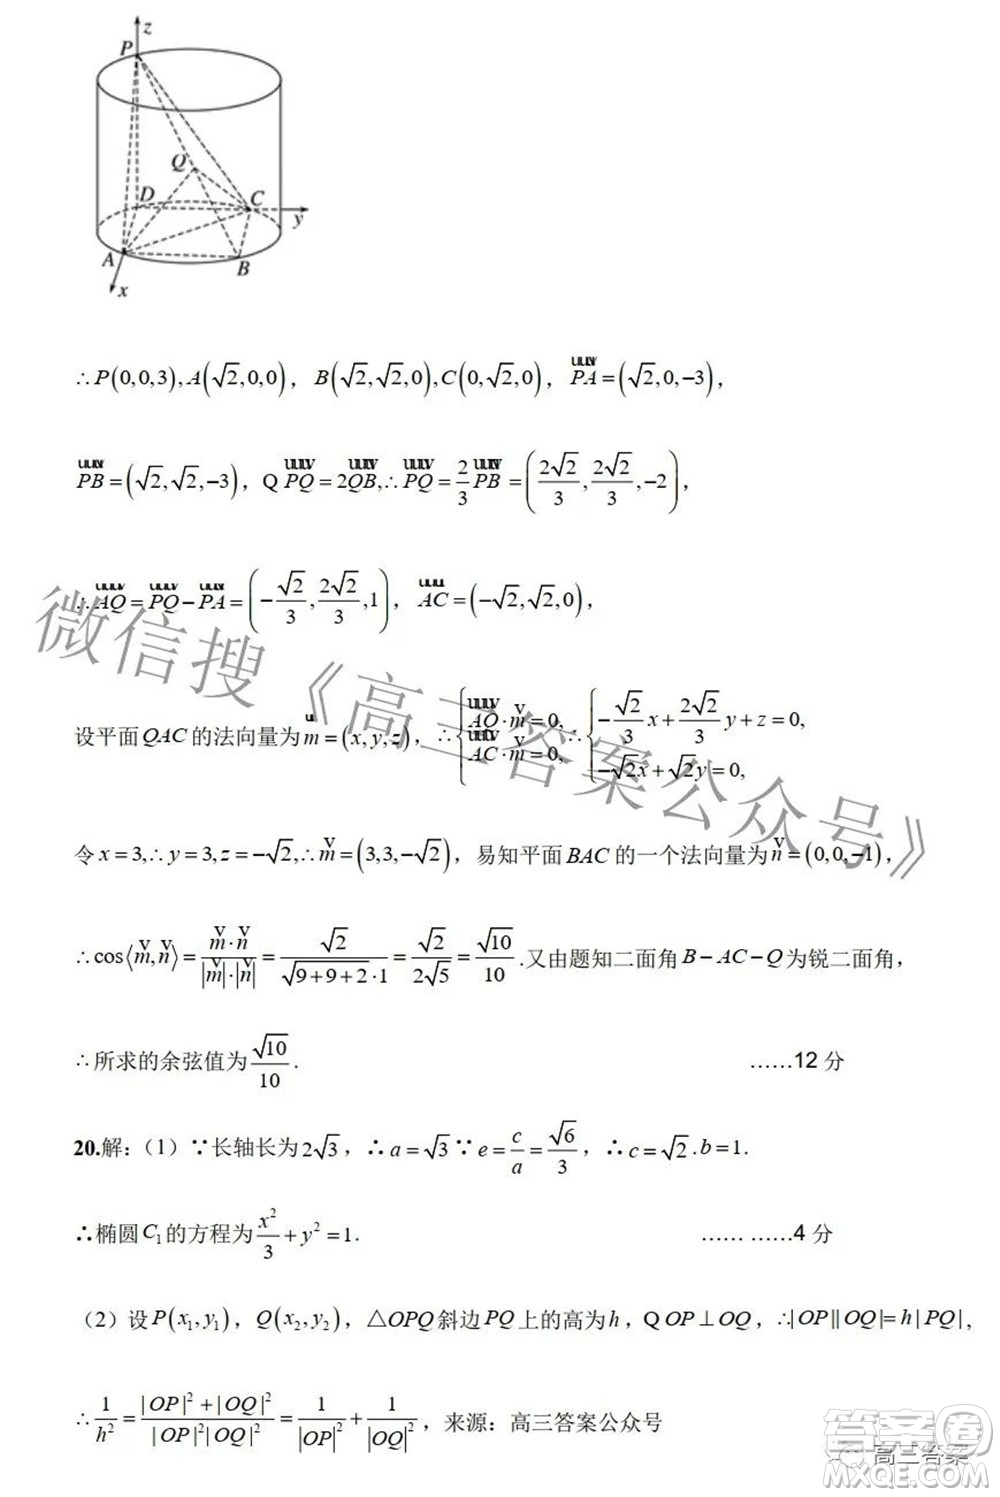 z
P
Q
D
C
y
A
B
x
∴P(0,0,3),A(√2,0,0)，B(√2,√2,0),C(0,√2,0)，PA=(√2,0,−3)，
PB=(√2,√2,−3)，Q PQ=2QB,∴PQ=2/3 PB=(2√2/3,2√2/3,−2)，
∴AQ=PQ−PA=(−√2/3,2√2/3,1)，AC=(−√2,√2,0)，
设平面QAC的法向量为m=(x,y,z)，∴{AQ·m=0, AC·m=0, ∴{−√2/3 x+2√2/3 y+z=0, −√2x+√2y=0,
令x=3,∴y=3,z=−√2,∴m=(3,3,−√2)，易知平面BAC的一个法向量为n=(0,0,−1)，
∴cos⟨m,n⟩=m·n/|m|·|n|=√2/√(9+9+2)·1=√2/2√5=√10/10.又由题知二面角B−AC−Q为锐二面角，
∴所求的余弦值为√10/10. ……12分
20.解：（1）∵长轴长为2√3，∴a=√3∵e=c/a=√6/3，∴c=√2.b=1.
∴椭圆C₁的方程为x²/3+y²=1. …… ……4分
（2）设P(x₁,y₁)，Q(x₂,y₂)，△OPQ斜边PQ上的高为h，Q OP⊥OQ，∴|OP||OQ|=h|PQ|，
∴1/h²=|OP|²+|OQ|²/|OP|²|OQ|²=1/|OP|²+1/|OQ|²，来源：高三答案公众号
微信搜《高三答案公众号》
高三答案
答案圈
MXQE.COM